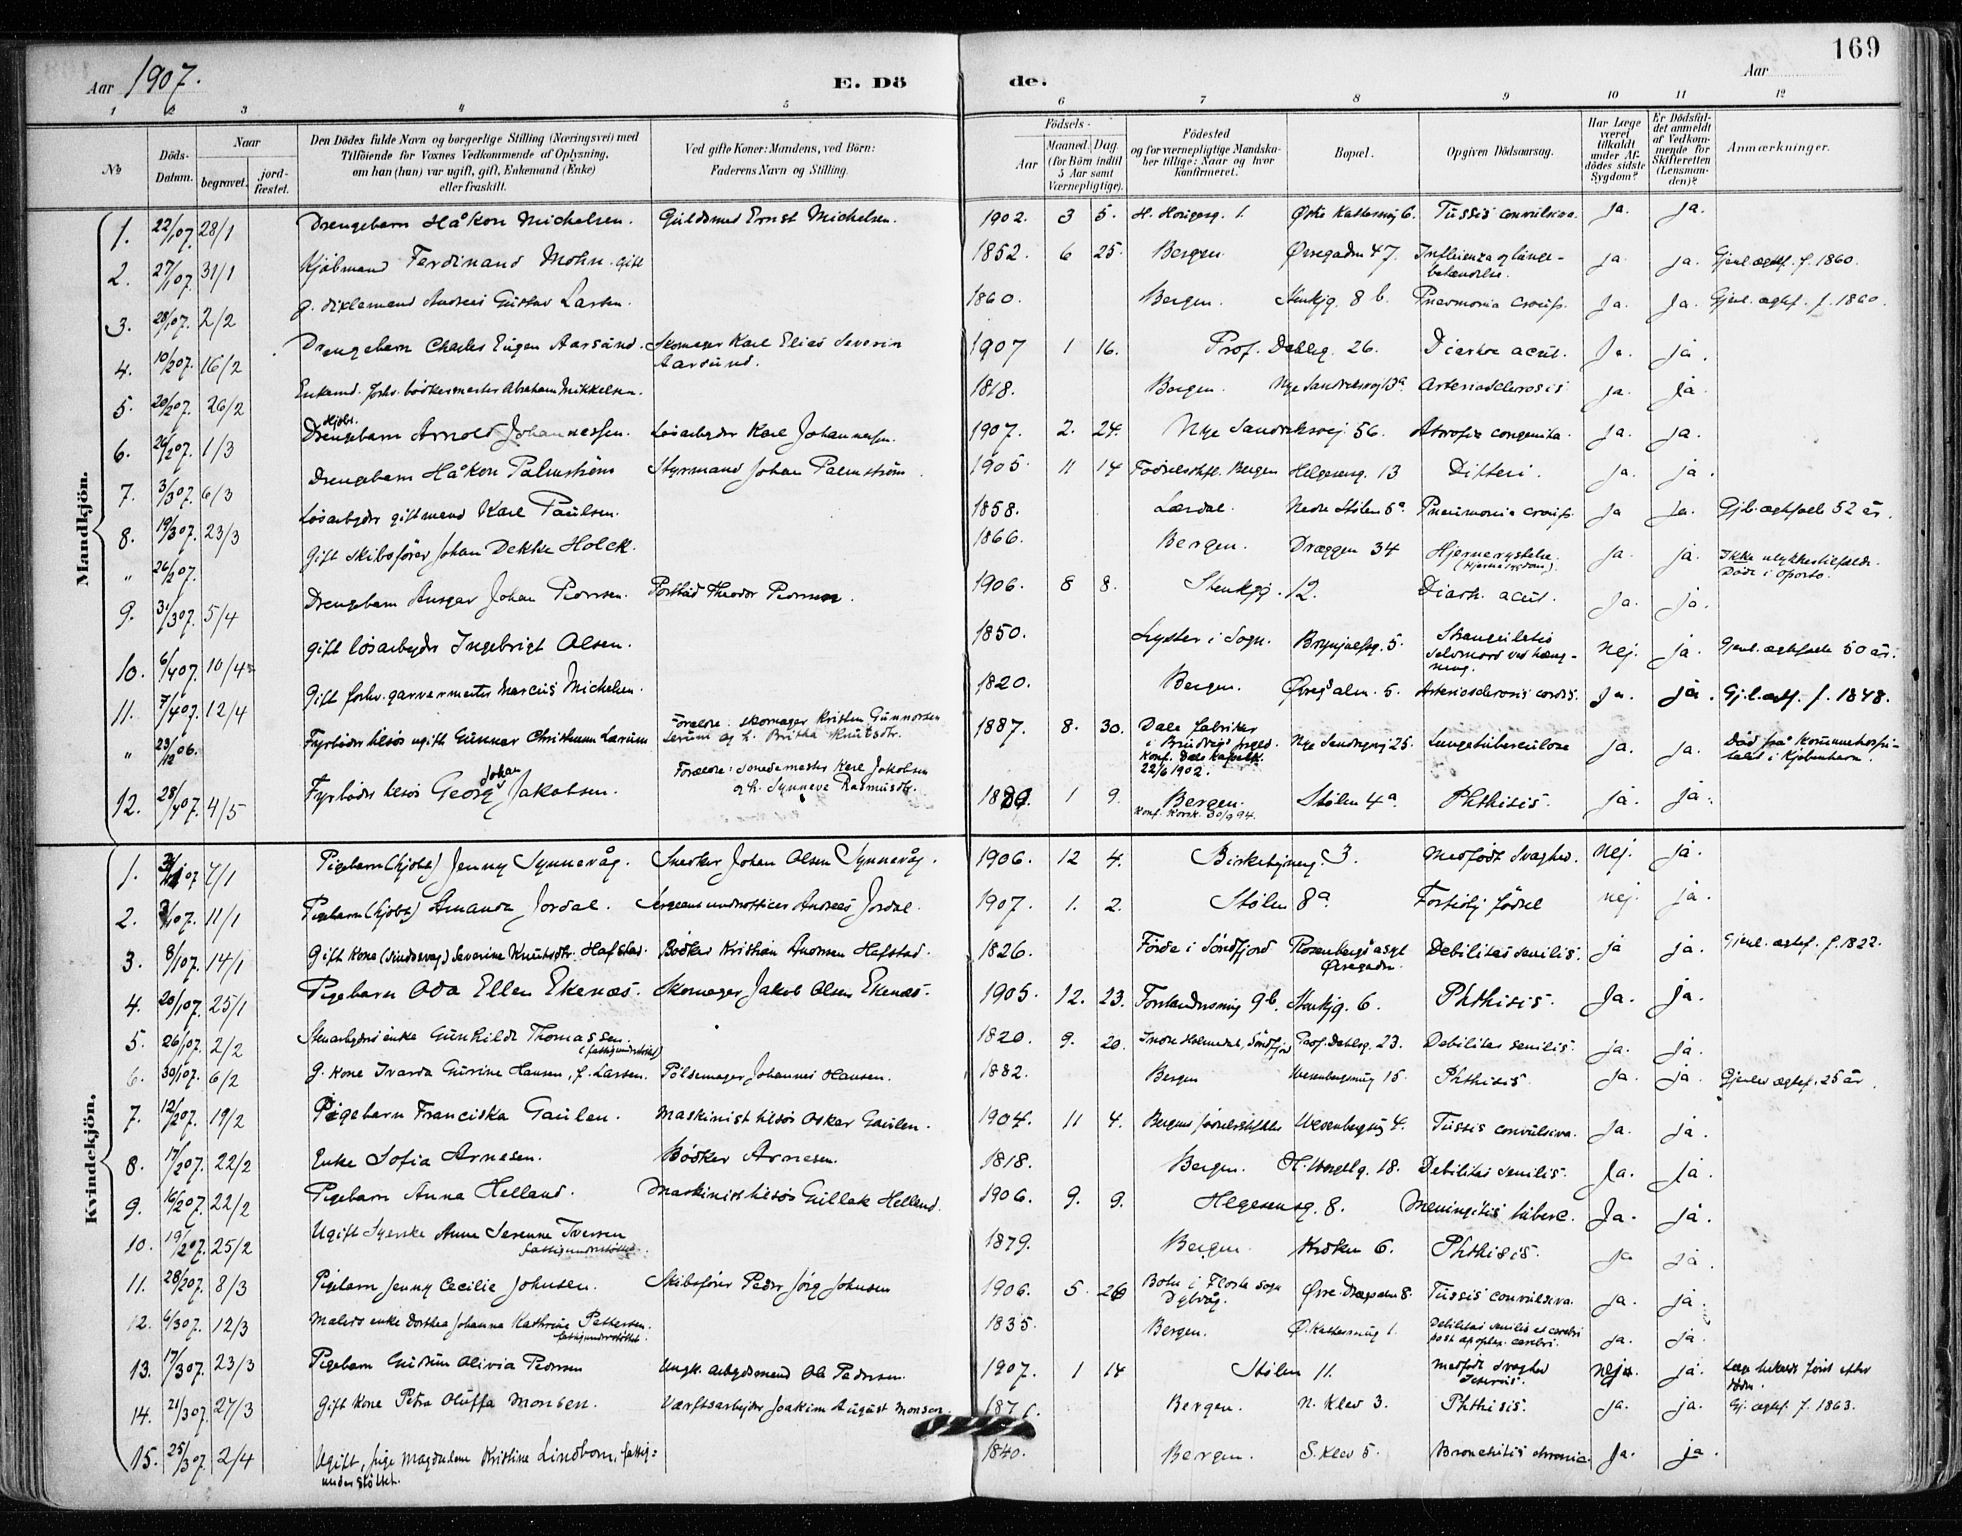 169
Aar 1907.
E. Döde.
Aar
1 2 3 4 5 6 7 8 9 10 11 12
№
Döds-Datum.
Naar
begravet.
jord-fæstet.
Den Dödes fulde Navn og borgerlige Stilling (Næringsvei) med
Tilföiende for Voxnes Vedkommende af Oplysning,
om han (hun) var ugift, gift, Enkemand (Enke)
eller fraskilt.
Ved gifte Koner: Mandens, ved Börn:
Faderens Navn og Stilling.
Födsels-
Aar
Maaned. Dag.
(for Börn indtil
5 Aar samt
Værnepligtige).
Födested
og for værnepligtige Mandska-
ber tillige: Naar og hvor
konfirmeret.
Bopæl.
Opgiven Dödsaarsag.
Har Læge
været
tilkaldt
under Af-
dödes sidste
Sygdom?
Er Dödsfal-
det anmeldt
af Vedkom-
mende for
Skifteretten
(Lensman-
den)?
Anmærkninger.
Mandkjön.
1. 22/1 07. 28/1 Drengebarn Håkon Michelsen. Guldsmed Ernst Michelsen. 1902. 3 5. 1. 6. Tussis convulsiva. ja. ja.
2. 27/1 07. 31/1 Kjøbmand Ferdinand Mohn. gift 1852. 6 25. Bergen. Øvregaden 47. Influenza og lunge-
betændelse. ja. ja. Gjenl. ægtef. f. 1860.
3. 28/1 07. 2/2 Andreas Gustav Larsen. 1860. Bergen. Stenkjg. 8 b. Pneumonia croup. Ja. Ja. Gjenl. ægtef. f. 1860.
4. 10/2 07. 16/2 Drengebarn Charles Eugen Aarsund. Skomager Karl Elias Severin
Aarsund. 1907 1 16. Prof. Dahlsg. 26. Diarhoe acut. Ja. ja.
5. 20/2 07. 26/2 Enkemd. forhv. bødkermester Abraham Mikkelsen. 1818. Bergen. Nye Sandviksvej 13a Arteriosclerosis ja. ja.
6. 26/2 07. 1/3 Hjdbt.
Drengebarn Arnold Johannessen. Løsarbejder Karl Johannessen. 1907. 2. 24. Nye Sandviksvej 56. Atrofia congenita. ja. ja.
7. 3/3 07. 6/3 Drengebarn Håkon Palmstrøm Styrmand Johan Palmstrøm 1905. 11 14 Fødselsstift. Bergen Helgesensg. 13 Difteri. ja. ja.
8. 19/3 07. 23/3 Løsarbejder gift mand Karl Paulsen. 1858. Lærdal. Nedre Stølen 5a Pneumonia croup. ja ja. Gjl. ægtefælle 52 år.
" 26/2 07. Gift skibsfører Johan Dekke Holck. 1866. Bergen. Dræggen 34 Hjernerystelse
ja. ja. Ikke ulykkestilfælde.
Døde i Oporto.
9. 31/3 07. 5/4 Drengebarn Ansgar Johan Pedersen. Postbud Theodor Pedersen. 1906. 8 8. Stenkjg. 12. Diarh. acut. ja. ja.
10. 6/4 07. 10/4 Gift løsarbejder Ingebrigt Olsen. 1850. Lyster i Sogn. Brynjulfsg. 5. Strangulatio
Selvmord ved hæng-
ning. nej. ja. Gjenl. ægtefælle 50 år.
11. 7/4 07. 12/4 Gift forhv. garvermester Marcus Michelsen. 1820. Bergen. Øvregd alm. 5. Arteriosclerosis cordis. ja. ja. Gj.l. ægtf. f. 1848.
" 23/12 06. Fyrbøder tilsøs ugift Gunnar Christiansen Lærum Forældre: skomager Kristen Gunnarsen
Lerum og h. Britha Knutsdtr. 1887. 8. 30. Dale fabriker
i Bruvigs præged.
Konf. Dale kapelk.
22/6 1902. Nye Sandvigsvej 25. Lungetuberculose ja. ja. Død på kommunehospi-
talet i Kjøbenhavn.
12. 28/4 07. 4/5 Fyrbøder tilsøs Georg Johan Jakobsen. Forældre: smedemester Karl Jakobsen
og h. Synneve Rasmusdtr. 1 9. Bergen.
Konf. Korsk. 30/9 94. Stølen 4a Phthisis. ja. ja.
Kvindekjön.
1. 7/1 Pigebarn (hjdbt) Jenny Synnevåg. Snedker Johan Olsen Synnevåg. 1906. 12 4. Birkebeinerg. 3. Medfødt svaghed. Nej. ja.
2. 11/1 Pigebarn (hjdbt) Amanda Jordal. Sergeant underofficer Andreas Jordal. 1907. 1. 2. Stølen 8a. Fortidlig fødsel nej. ja.
3. 8/1 07. 14/1 Gift kone (sindssvag) Severine Knutsdtr. Hafstad. Bødker Kristian Andersen Hafstad. 1826. Førde i Søndfjord Rosenbergs asyl
Øvregaden. Debilitas senilis. ja ja. Gjenl. ægtef. f. 1822.
4. 20/1 07. 25/1 Pigebarn Oda Ellen Ekenæs. Skomager Jakob Olsen Ekenæs. 1905. 12. 23. Forstandersmug 9b. Stenkjg. 6. Phthisis. Ja. ja.
5. 26/1 07. 2/2 Stenarbejders enke Gunhilde Thomassen.
(fattigunderstøttet) 1820. 9. 20. Indre Holmedal, Søndfjord Prof. Dahlsg. 23. Debilitas senilis. ja. ja.
6. 30/1 07. 6/2 G. kone Ivarda Gurine Hansen, f. Larsen. Pølsemager Johannes Hansen. 1882. Bergen Wesenbergsmug 15. Phthisis. ja ja. Gjenlev ægtef. 25 år.
7. 12/2 07. 19/2 Pigebarn Franciska Gaulen. Maskinist tilsøs Oskar Gaulen. 1904. 11 4. Bergens fødselsstiftelse Wesenbergsmg 4. Tussis convulsiva. Ja. ja.
8. 17/2 07. 22/2 Enke Sofia Arnesen. Bødker Arnesen. 1818. Bergen. 18. Debilitas senilis. Ja. ja.
9. 16/2 07. 22/2 Pigebarn Anna Helland. Maskinist tilsøs Gullak Helland. 1906. 9. 9. Helgesensg. 8. Meningitis tuberc. Ja. ja.
10. 19/2 07. 25/2 Ugift Syerske Anne Serenne Iversen
fattigunderstøttet. 1879. Bergen. Kroken 6. Phthisis. ja ja.
11. 28/2 07. 8/3 Pigebarn Jenny Cecilie Johnsen. Skibsfører Peder Jörg Johnsen 1906. 5. 26 i Flosta sogn
Dybvåg. Øvre Dræggealm 8. Tussis convulsiva. ja. ja.
12. 6/3 07. 12/3 Malers enke Dorthea Johanna Kathrine Pettersen.
fattigunderstøttet. 1835. Bergen. Ø. 1. Debilitas senilis et cerebri
post apoplex. cerebri. ja. ja.
13. 17/3 07. 23/3 Pigebarn Gudrun Olivia Pedersen Ungk. arbejdsmand Ole Pedersen. 1907. 1 14 Stølen 11. Medfødt svaghed
Icterus. ja. Læge tilkaldt først efter
døden.
14. 21/3 07. 27/3 Gift kone Petra Oluffa Monsen. Værftsarbejder Joakim August Monsen. Bergen. N. Klev 3. Phthisis. ja. ja. Gj. ægtef. f. 1863.
15. 25/3 07. 2/4 Ugift, pige Magdalene Kristine Lindbom, fattig-
understøttet. 1840. Bergen. S. Klev 5. Bronchitis chronica. Ja. ja